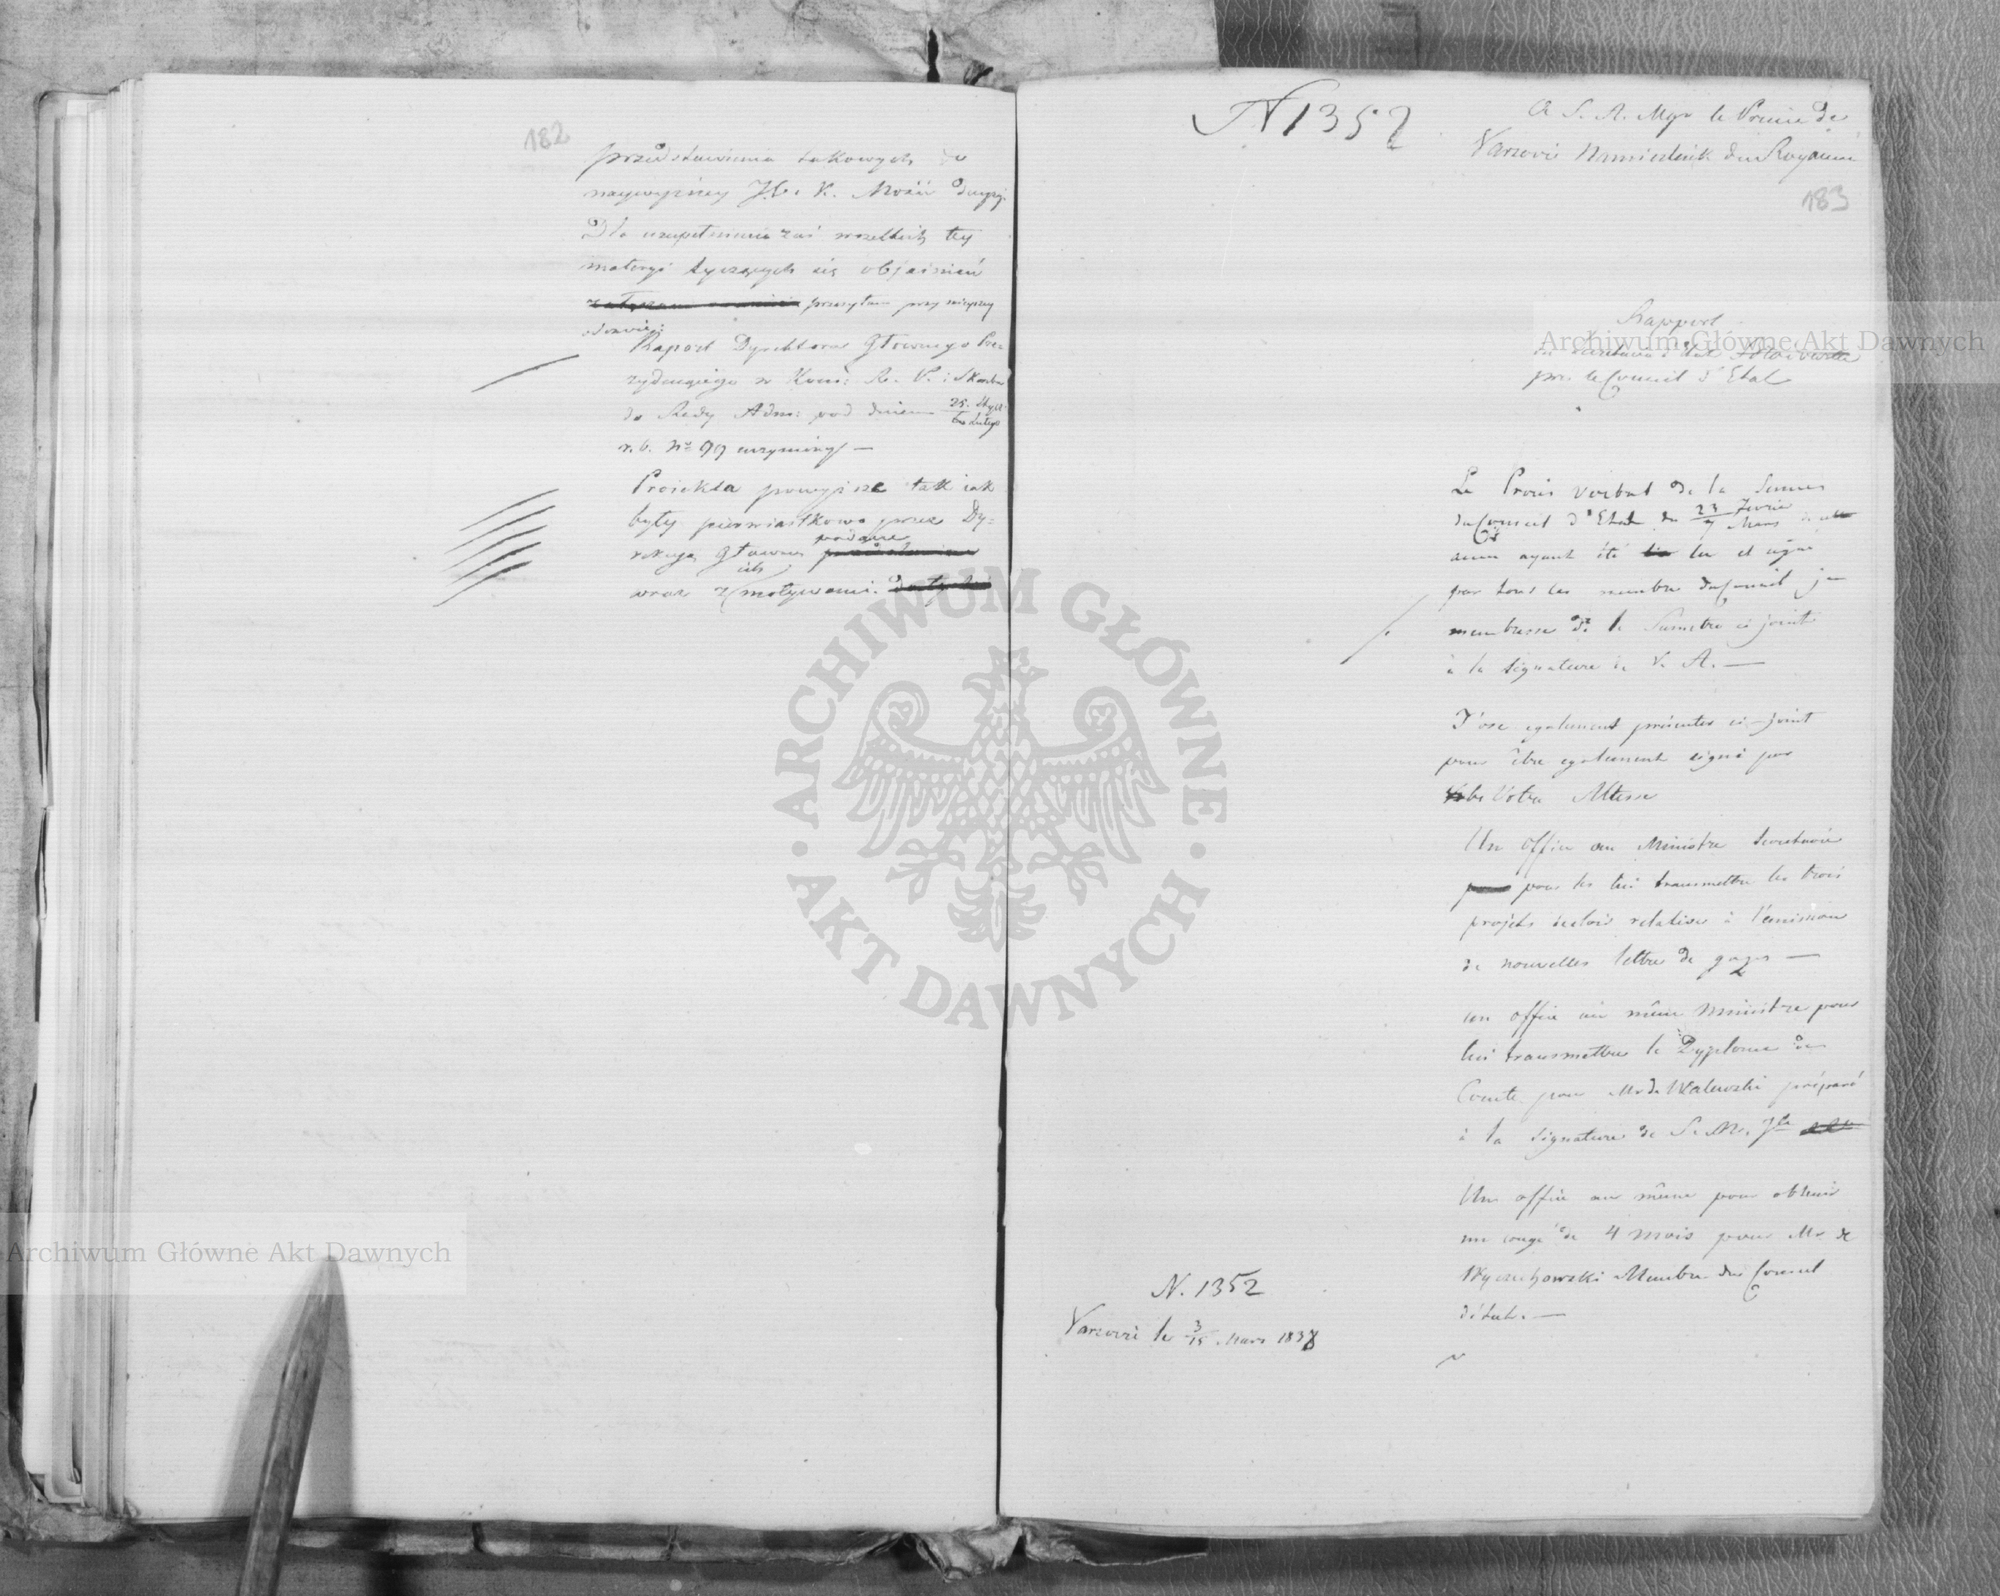 182
przedstawienia takowych do
naywyższey J. C. K. Mości decyzyi.
Dla uzupełnienia zaś wszelkich tey
materyi tyczących się objaśnień
przesyłam przy ninieyszey
odezwie:
Raport Dyrektora Głównego Pre-
zydującego w Kom: R. P. i Skarbu
do Rady Adm: pod dniem 25. Stycz: / 6 Lutego
r. b. No 99 uczyniony —
Proiekta powyższe tak iak
były pierwiastkowo przez Dy=
rekcyą Główną podane
wraz z ich motywami.
N 1352
A S. A. Mgr le Prince de
Varsovie Namiestnik du Royaume
183
Rapport
du Secrétaire d'Etat
près le Conseil d'Etat
Le Procès verbal de la Séance
du Conseil d'Etat du 23 Fevrier / 7 Mars
ayant été lu et signé
par tous les membres du Conseil je
m'empresse de le Sumettre ci joint
à la signature de V. A. —
J'ose egalement présenter ci-joint
pour être egalement signé par
Votre Altesse
Un office au Ministre Secretaire
pour lui transmettre les trois
projets de lois relatives à l'emission
de nouvelles lettres de gages —
un office au même Ministre pour
lui transmettre le Dyplome de
Comte pour Mr de Walewski préparé
à la signature de S. M. Jle
Un office au même pour obtenir
un congé de 4 mois pour Mr de
Wyczechowski Membre du Conseil
d'état. —
N. 1352
Varsovie le 3/15 Mars 1838
Archiwum Główne Akt Dawnych
Archiwum Główne Akt Dawnych
ARCHIWUM GŁÓWNE
AKT DAWNYCH